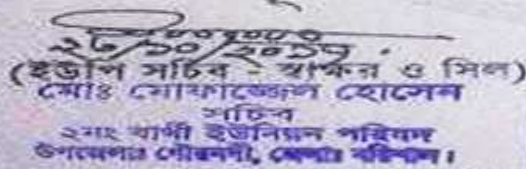 ২৮/১০/২০১৭
(ইউপি সচিব - স্বাক্ষর ও সিল)
মোঃ মোফাজ্জেল হোসেন
সচিব
২নং বার্থী ইউনিয়ন পরিষদ
উপজেলাঃ গৌরনদী, জেলাঃ বরিশাল।